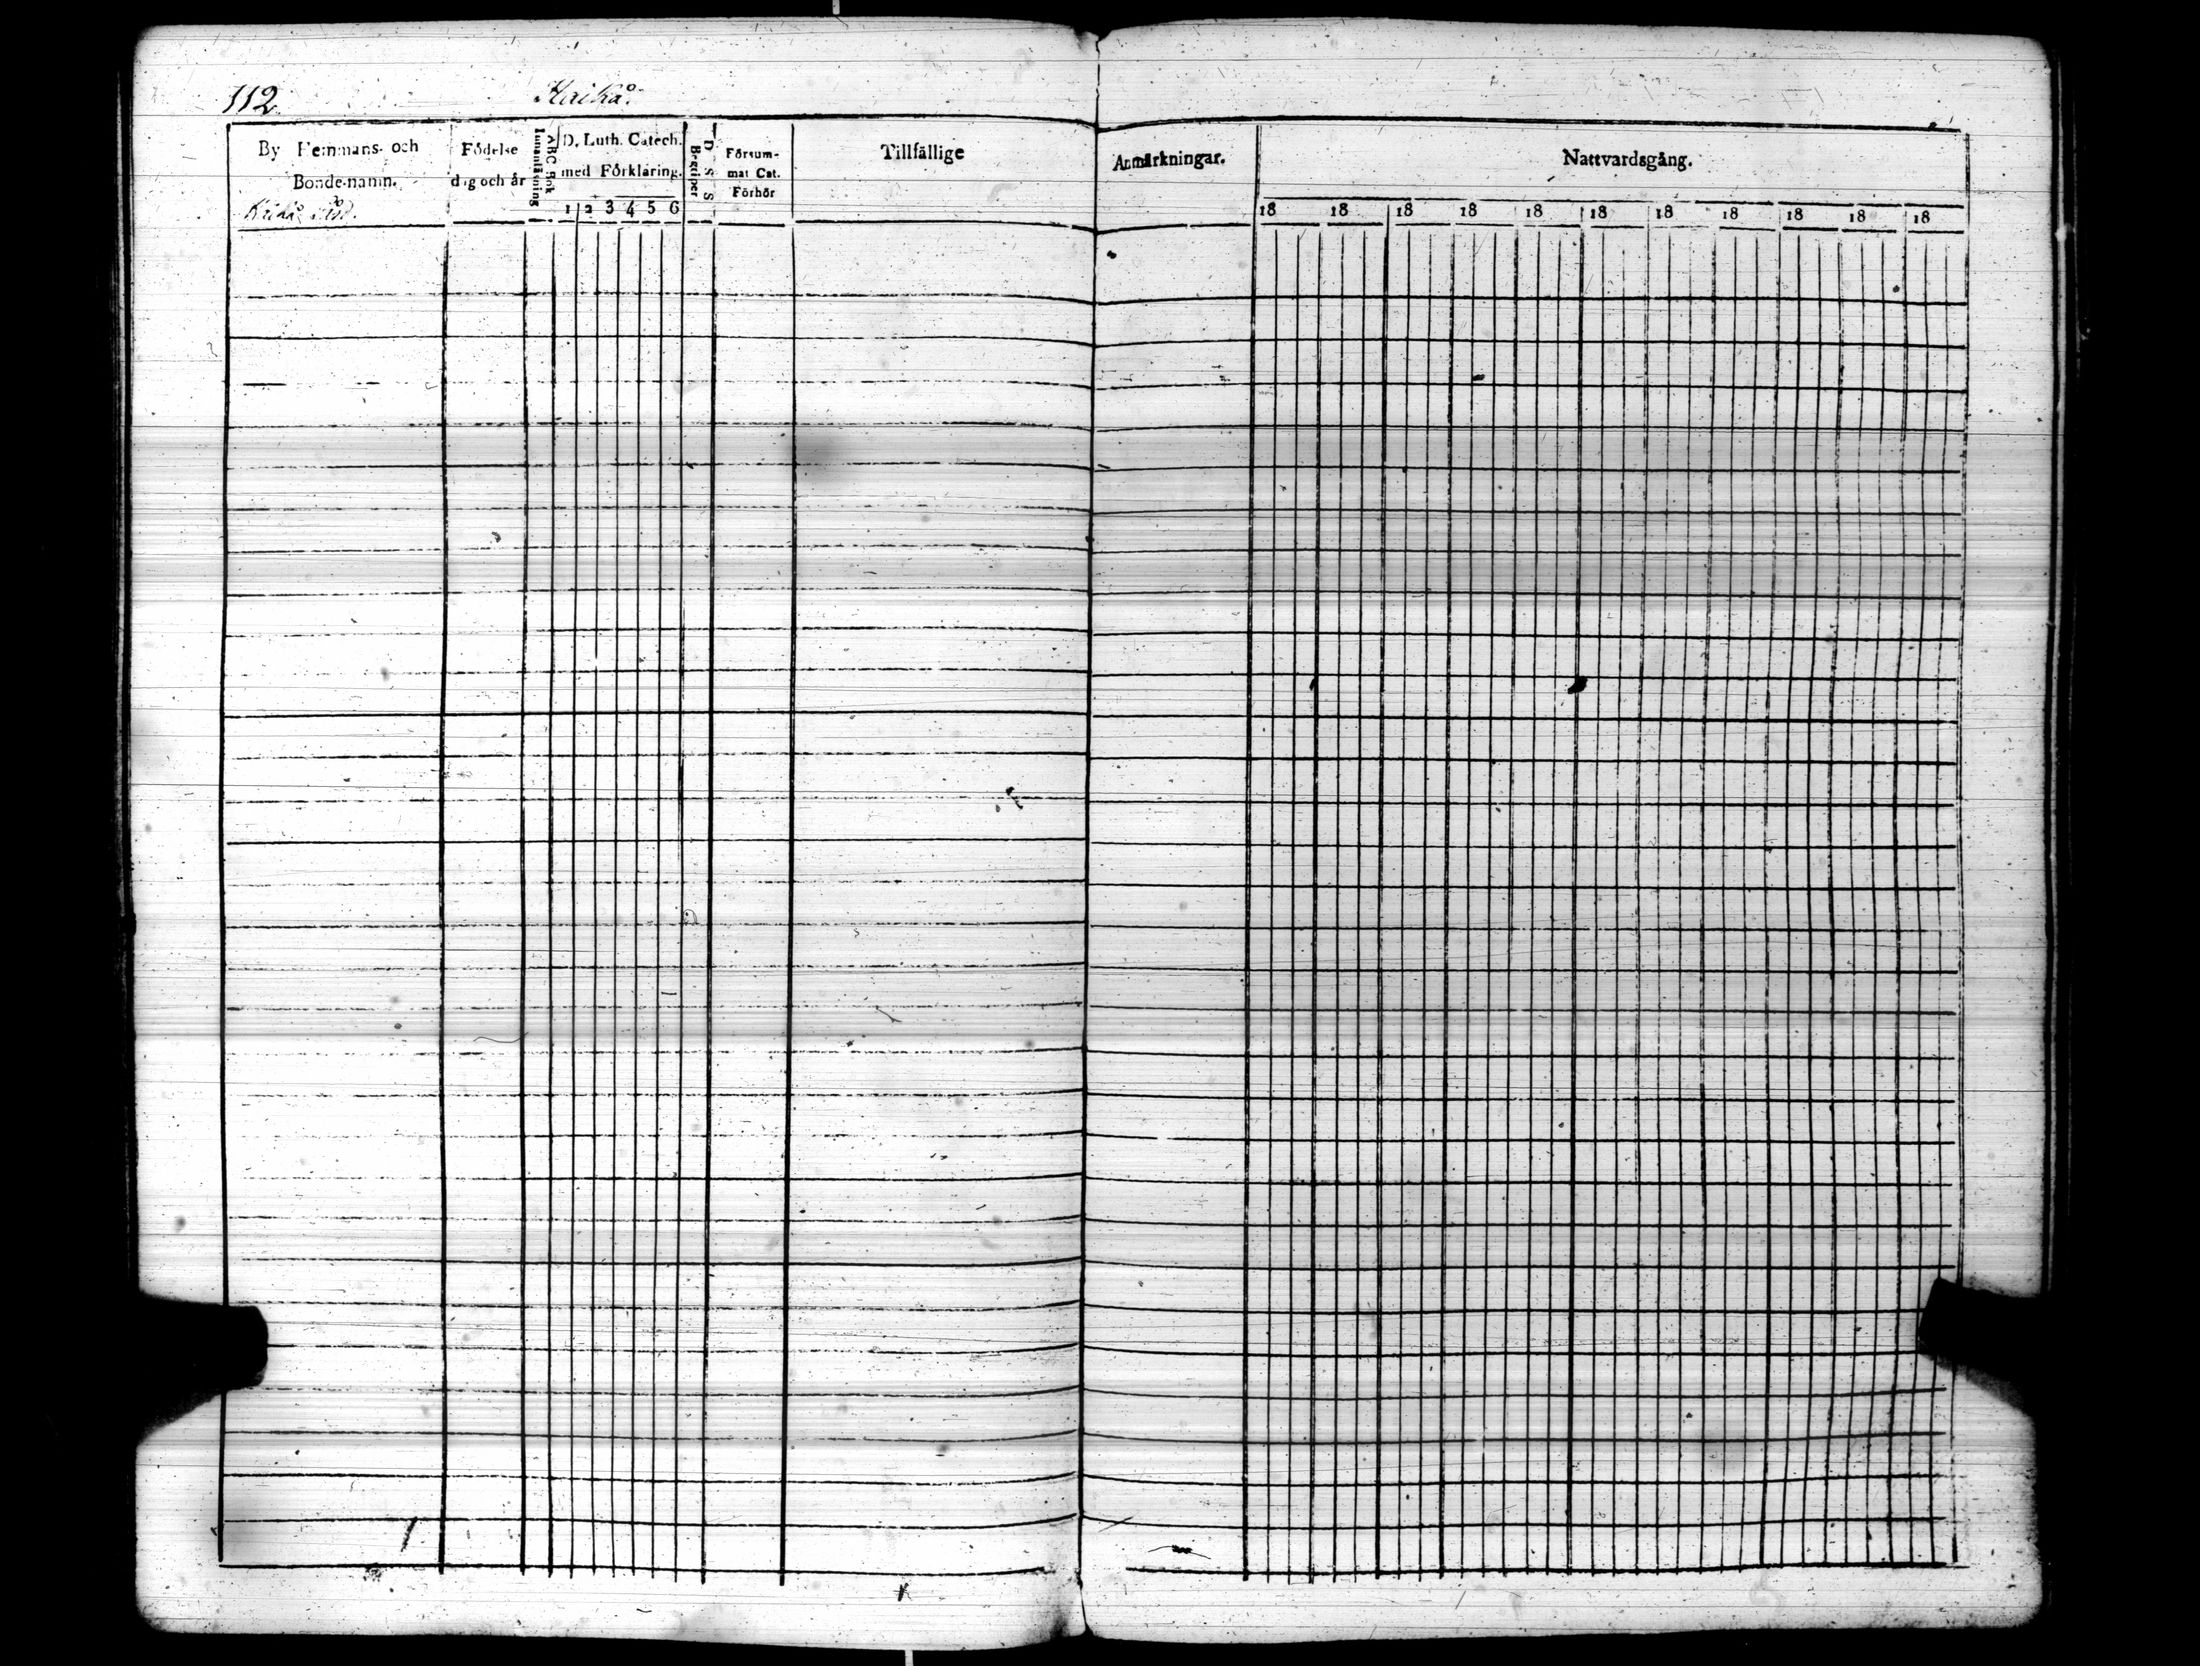 112 Kaikå.
By Hemmans- och
Bonde-namn.
Födelse
dag och år
Innanläsning
ABC Bok
D. Luth. Catech.
med Förklaring.
1 2 3 4 5 6
Begriper
D S S
Försum-
mat Cat.
Förhör
Tillfällige
Anmärkningar.
Nattvardsgång.
18 18 18 18 18 18 18 18 18 18 18